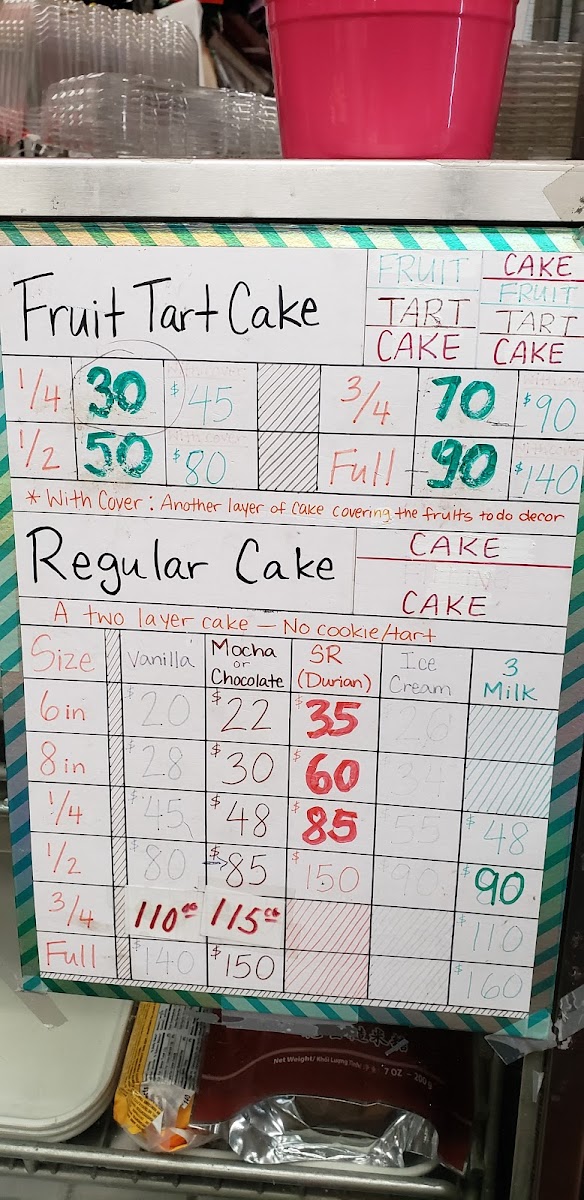 Fruit Tart Cake
FRUIT
TART
CAKE
CAKE
FRUIT
TART
CAKE
1/4 30 $45 3/4 70 $90
1/2 50 With cover $80 Full 90 $140
* With Cover : Another layer of cake covering the fruits to do decor
Regular Cake
CAKE
CAKE
A two layer cake — No cookie/tart
Size Vanilla Mocha or Chocolate SR (Durian) Ice Cream 3 Milk
6 in $20 $22 $35 26
8 in $28 $30 $60 34
1/4 $45 $48 $85 55 $48
1/2 $80 $85 $150 90 $90
3/4 110 115 $110
Full $140 $150 $160
Net Weight/ Khối Lượng Tịnh 7 OZ - 200 g